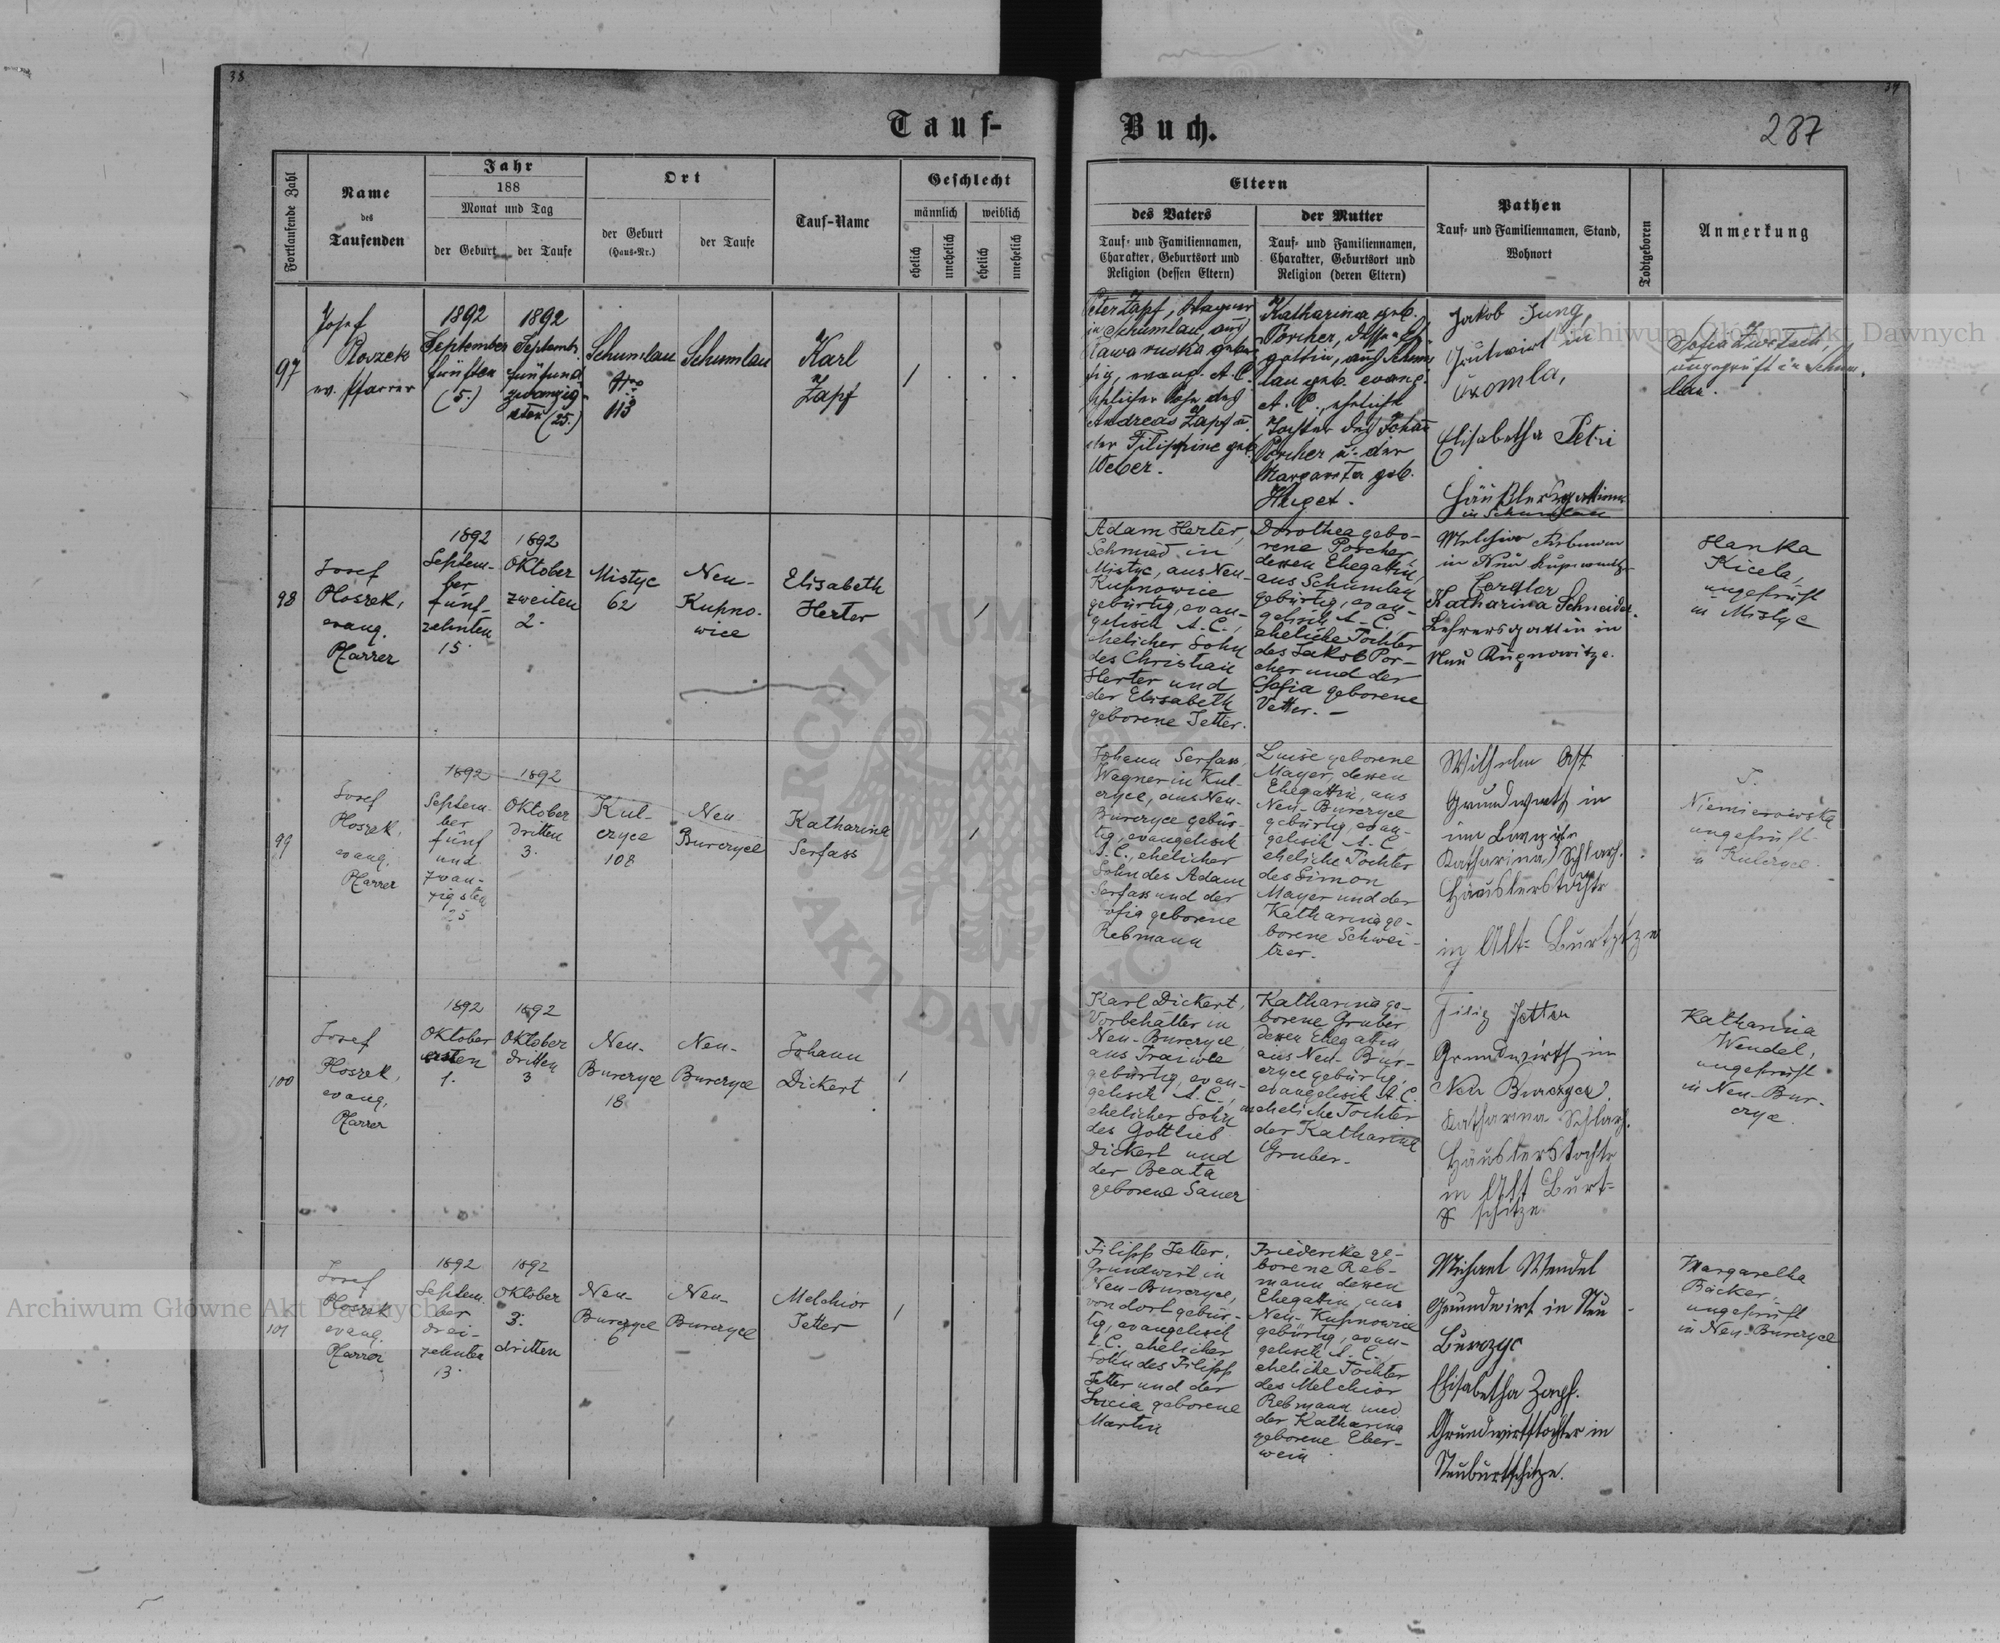 38
39
Tauf-
Buch.
287
Fortlaufende Zahl
Name
des
Taufenden
Jahr
188
Monat und Tag
der Geburt
der Taufe
Ort
der Geburt
(Haus-Nr.)
der Taufe
Tauf-Name
Geschlecht
männlich
weiblich
ehelich
unehelich
ehelich
unehelich
Eltern
des Vaters
Tauf- und Familiennamen,
Charakter, Geburtsort und
Religion (dessen Eltern)
der Mutter
Tauf- und Familiennamen,
Charakter, Geburtsort und
Religion (deren Eltern)
Pathen
Tauf- und Familiennamen, Stand,
Wohnort
Todtgeboren
Anmerkung
97
Josef
ev. Pfarrer
1892
September
fünften
(5.)
1892
Septemb.
fünfund
zwanzig-
sten (25.)
Schumlau
Nro
113
Schumlau
Karl
Zapf
1
Peter Zapf, Wagner
in Schumlau, aus
Rawa ruska gebür-
tig, evang. A. C.
ehelicher Sohn des
Andreas Zapf u.
der Filippine geb.
Weber.
Katharina geb.
Porcher, dessen Eh-
gattin, aus Schum-
lau geb. evang.
A. C., eheliche
Tochter des Johan
Porcher u. der
Margareta geb.
Huget.
Jakob Jung,
Grundwirt in
Elisabetha Petri
Häuslersgattin
in Schumlau
Sofia
ungeprüft in Schum-
lau.
98
Josef
Ploszek,
evang.
Pfarrer
1892
Septem-
ber
fünf-
zehnten
15.
1892
Oktober
zweiten
2.
Mistyc
62
Neu-
Kupno-
wice
Elisabeth
Herter
1
Adam Herter,
Schmied in
Mistyc, aus Neu-
Kupnowice
gebürtig, evan-
gelisch A. C.,
ehelicher Sohn
des Christian
Herter und
der Elisabeth
geborene Jetter.
Dorothea gebo-
rene Porcher,
dessen Ehegattin,
aus Schumlau
gebürtig, evan-
gelisch A. C.
eheliche Tochter
des Jakob Por-
cher und der
Sofia geborene
Vetter. —
Melchior
in Neu
Katharina Schneider
Lehrersgattin in
Neu Kupnowitze.
Hanka
Kicela,
ungeprüft
in Mistyc
99
Josef
Ploszek,
evang.
Pfarrer
1892
Septem-
ber
fünf
und
zwan-
zigsten
25
1892
Oktober
dritten
3.
Kul-
czyce
108
Neu
Burczyce
Katharina
Serfass
1
Johann Serfass,
Wagner in Kul-
czyce, aus Neu-
Burczyce gebür-
tig, evangelisch
A. C., ehelicher
Sohn des Adam
Serfass und der
Sofia geborene
Rebmann
Luise geborene
Mayer, dessen
Ehegattin, aus
Neu-Burczyce
gebürtig, evan-
gelisch A. C.
eheliche Tochter
des Simon
Mayer und der
Katharina ge-
borene Schwei-
tzer.
Wilhelm Ast
Grundwirth in
Katharina Schlarh.
Häuslerstochtr
in Alt-Burtzize
T.
Niemierowska
ungeprüft
in Kulczyce
100
Josef
Ploszek,
evang.
Pfarrer
1892
Oktober
ersten
1.
1892
Oktober
dritten
3
Neu-
Burczyce
18
Neu-
Burczyce
Johann
Dickert
1
Karl Dickert,
Vorbehälter in
Neu-Burczyce,
gebürtig, evan-
gelisch A. C.,
ehelicher Sohn
des Gottlieb
Dickert und
der Beata
geborene Sauer
Katharina ge-
borene Gruber
dessen Ehegattin,
aus Neu-Bur-
czyce gebürtig,
evangelisch A. C.
uneheliche Tochter
der Katharina
Gruber.
Filip Jetter
Grundwirth in
Neu Burczyce.
Katharina Schlarh.
Häuslerstochtr
in Alt Burt-
schitze
Katharina
Wendel,
ungeprüft
in Neu-Bur-
czyce.
101
Josef
Ploszek
evang.
Pfarrer
1892
Septem.
ber
drei-
zehnten
13.
1892
Oktober
3.
dritten
Neu-
Burczyce
6
Neu-
Burczyce
Melchior
Jetter
1
Filipp Jetter,
Grundwirt in
Neu-Burczyce,
von dort gebür-
tig, evangelisch
A. C. ehelicher
Sohn des Filipp
Jetter und der
Lucia geborene
Martin
Friedericke ge-
borene Reb-
mann dessen
Ehegattin aus
Neu-Kupnowice
gebürtig, evan-
gelisch A. C.
eheliche Tochter
des Melchior
Rebmann und
der Katharina
geborene Eber-
wein
Michael Wendel
Grundwirt in Neu
Burczyc
Elisabetha Zapf.
Grundwirtstochter in
Neuburtschitze.
Margaretha
Bäcker,
ungeprüft
in Neu-Burczyce
Archiwum Główne Akt Dawnych
Archiwum Główne Akt Dawnych
ARCHIWUM
AKT DAWNYCH